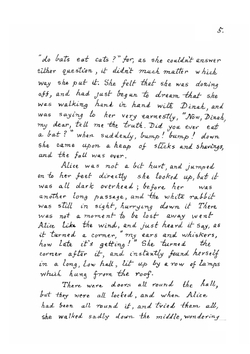 5.
"do bats eat cats?" for, as she couldn't answer
either question, it didn't much matter which
way she put it. She felt that she was dozing
off, and had just begun to dream that she
was walking hand in hand with Dinah, and
was saying to her very earnestly, "Now, Dinah,
my dear, tell me the truth. Did you ever eat
a bat?" when suddenly, bump! bump! down
she came upon a heap of sticks and shavings,
and the fall was over.
Alice was not a bit hurt, and jumped
on to her feet directly she looked up, but it
was all dark overhead; before her was
another long passage, and the white rabbit
was still in sight, hurrying down it. There
was not a moment to be lost away went
Alice like the wind, and just heard it say, as
it turned a corner, "my ears and whiskers,
how late it's getting!" She turned the
corner after it, and instantly found herself
in a long, low hall, lit up by a row of lamps
which hung from the roof.
There were doors all round the hall,
but they were all locked, and when Alice
had been all round it, and tried them all,
she walked sadly down the middle, wondering